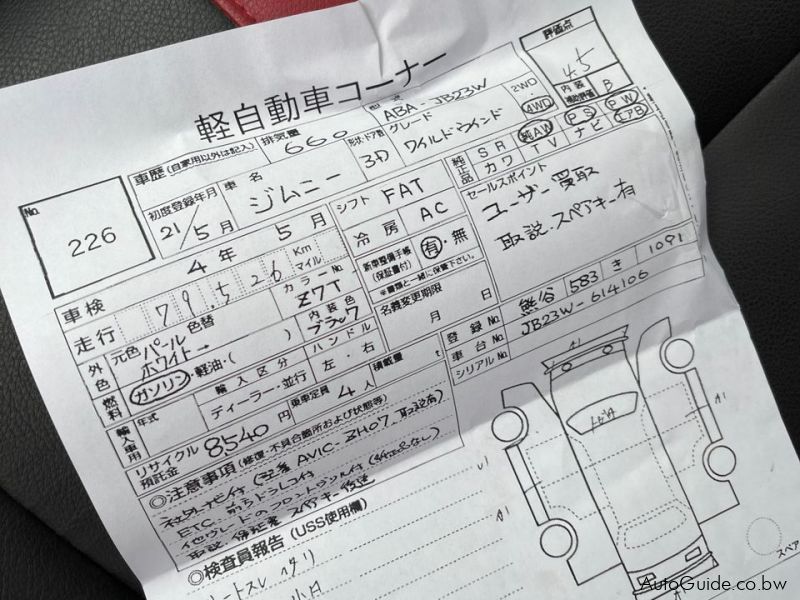 軽自動車コーナー
No.
226
車歴(自家用以外は記入)
排気量
660
型式
ABA-JB23W
評価点
4.5
内装
補助評価
B
初度登録年月
21/5月
車名
ジムニー
形状・ドア数
3D
グレード
ワイルドウインド
2WD
4WD
車検
4年5月
シフト
FAT
純正品
SR
純AW
PS
PW
カワ
TV
ナビ
エアB
走行
79,526
Km
マイル
冷房
AC
セールスポイント
ユーザー買取
取説・スペアキー有
外色
元色
パールホワイト→
色替
カラーNo.
Z7T
内装色
ブラック
新車整備手帳
(保証書付)
有・無
※書類と一緒に保管下さい。
燃料
ガソリン・軽油・( )
ハンドル
左・右
名義変更期限
月 日
登録No.
熊谷 583 き 1091
輸入車用
年式
輸入区分
ディーラー・並行
積載量
t
車台No.
JB23W-614106
リサイクル預託金
8540円
乗車定員
4人
シリアルNo.
◎注意事項(修復・不具合箇所および状態等)
社外ナビ付
ETC
取説、保証書、スペアキー後送
◎検査員報告(USS使用欄)
シートスレ
A1
A1
スペア
AutoGuide.co.bw